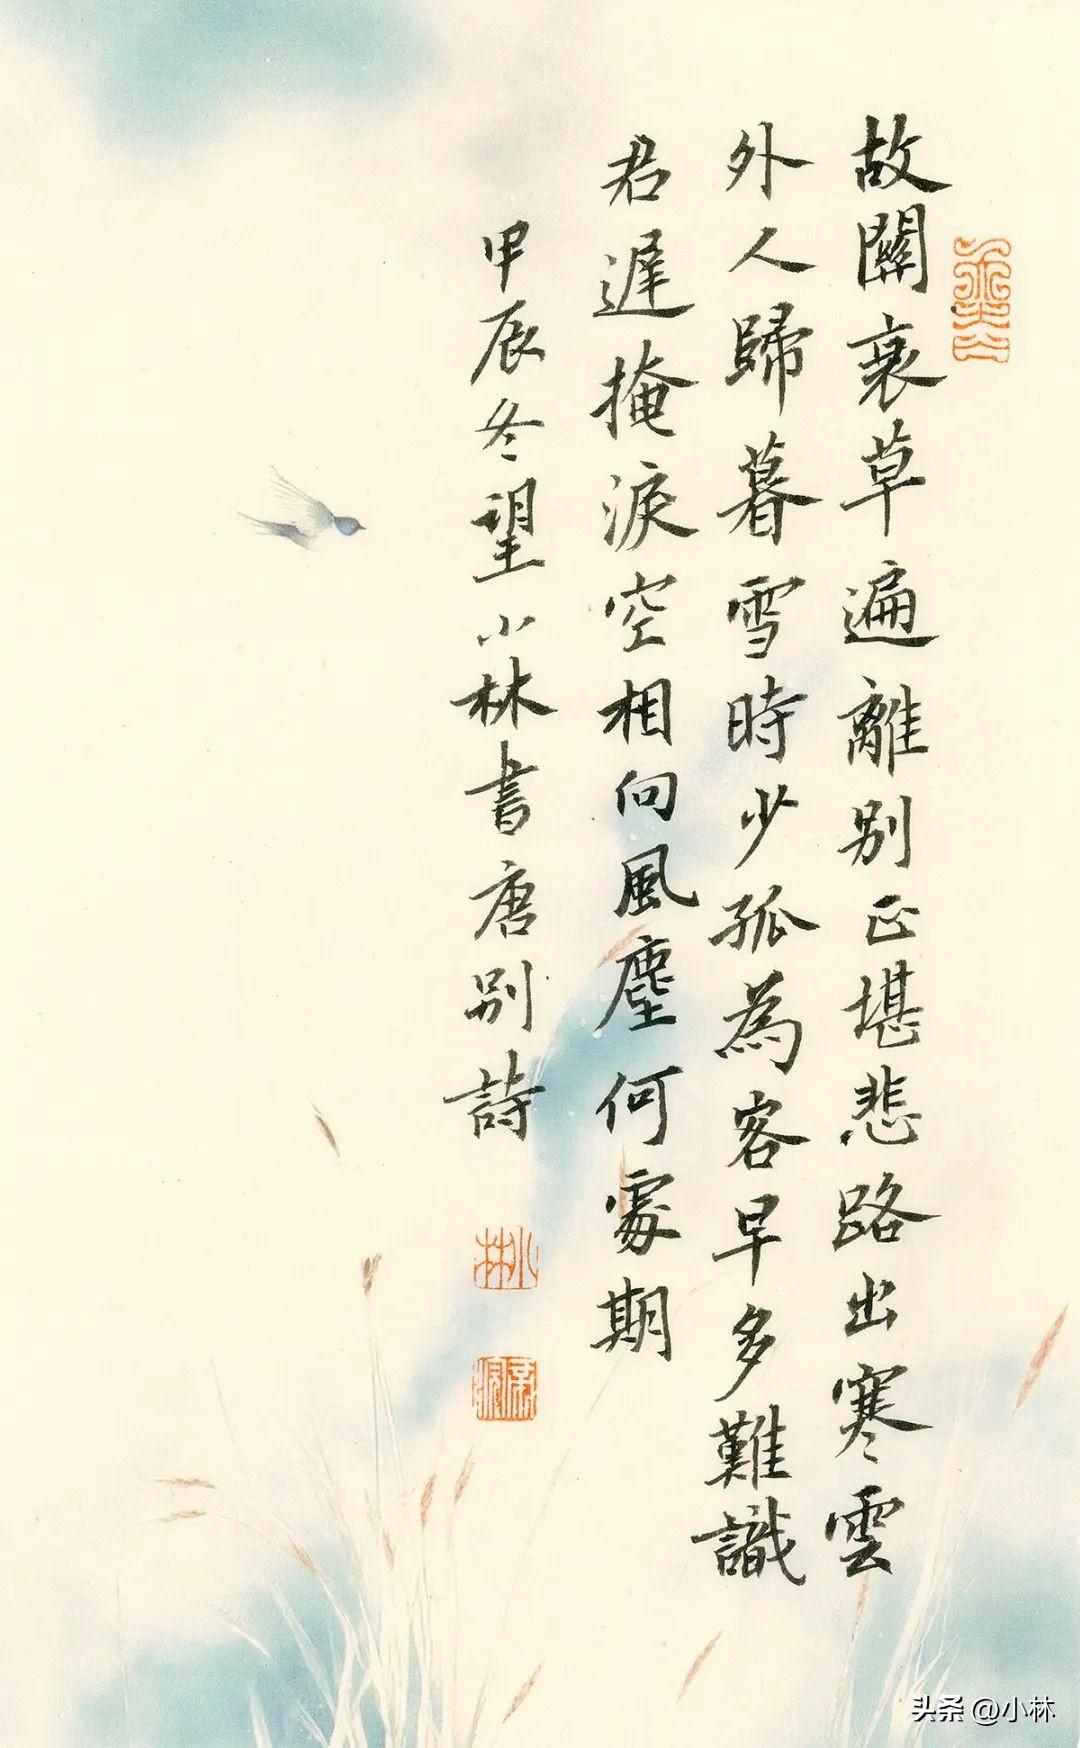 故關衰草遍離別正堪悲路出寒雲
外人歸暮雪時少孤為客早多難識
君遲掩淚空相向風塵何處期
甲辰冬望小林書唐別詩
小林
头条 @小林